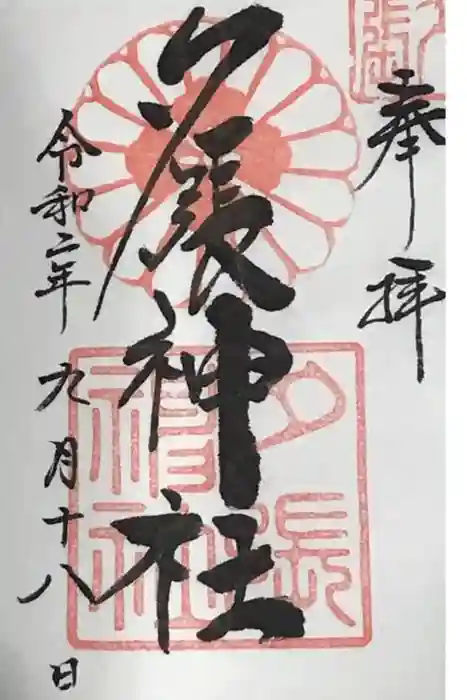 奉拝
夕張神社
令和二年九月十八日
夕張
神社